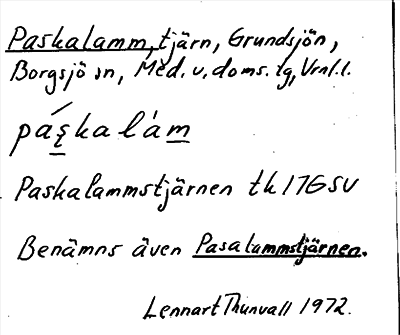 Paskalamm, tjärn, Grundsjön,
Borgsjö sn, Med. v. doms. tg, Vrnl.l.
páskalàm
Paskalammstjärnen tk 17G SV
Benämns även Pasalammstjärnen.
Lennart Thunvall 1972.